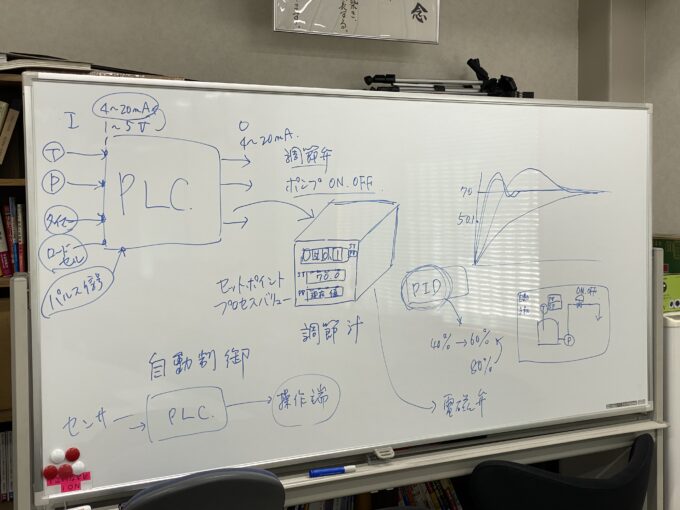 念
I
4~20mA
1~5V
T
P
タイマー
ロードセル
パルス信号
PLC.
O
4~20mA.
調節弁
ポンプ ON.OFF.
70.0
現在値
セットポイント
プロセスバリュー
調節計
PID
40% → 60%
80%
電磁弁
70
50
ON.OFF
T
P
自動制御
センサ
PLC.
操作端